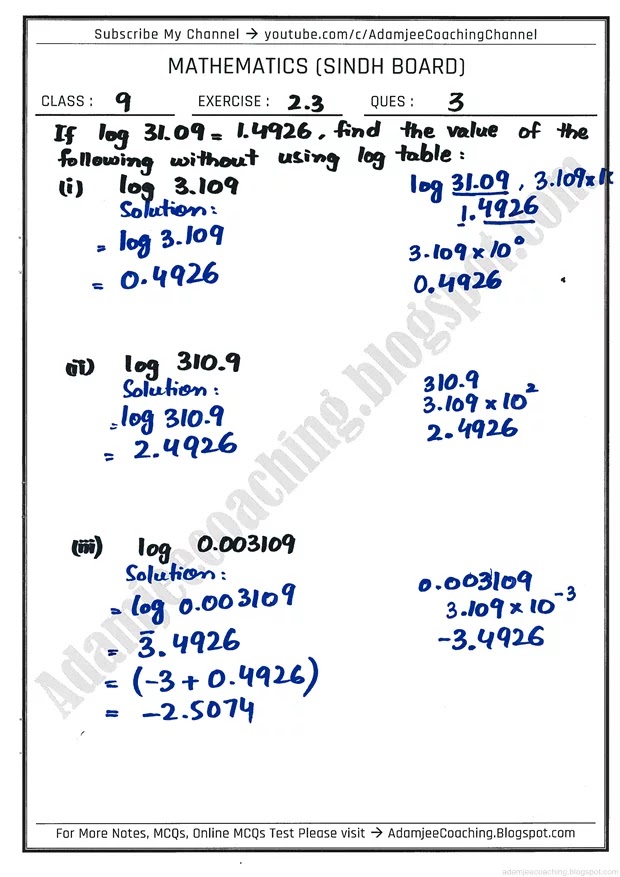 Subscribe My Channel → youtube.com/c/AdamjeeCoachingChannel
MATHEMATICS (SINDH BOARD)
CLASS : 9 EXERCISE : 2.3 QUES : 3
If log 31.09 = 1.4926, find the value of the
following without using log table :
(i) log 3.109
Solution:
= log 3.109
= 0.4926
log 31.09, 3.109×1
1.4926
3.109 × 10⁰
0.4926
(ii) log 310.9
Solution:
= log 310.9
= 2.4926
310.9
3.109 × 10²
2.4926
(iii) log 0.003109
Solution:
= log 0.003109
= 3̄.4926
= (-3 + 0.4926)
= -2.5074
0.003109
3.109 × 10⁻³
-3.4926
Adamjeecoaching.blogspot.com
For More Notes, MCQs, Online MCQs Test Please visit → AdamjeeCoaching.Blogspot.com
adamjeecoaching.blogspot.com